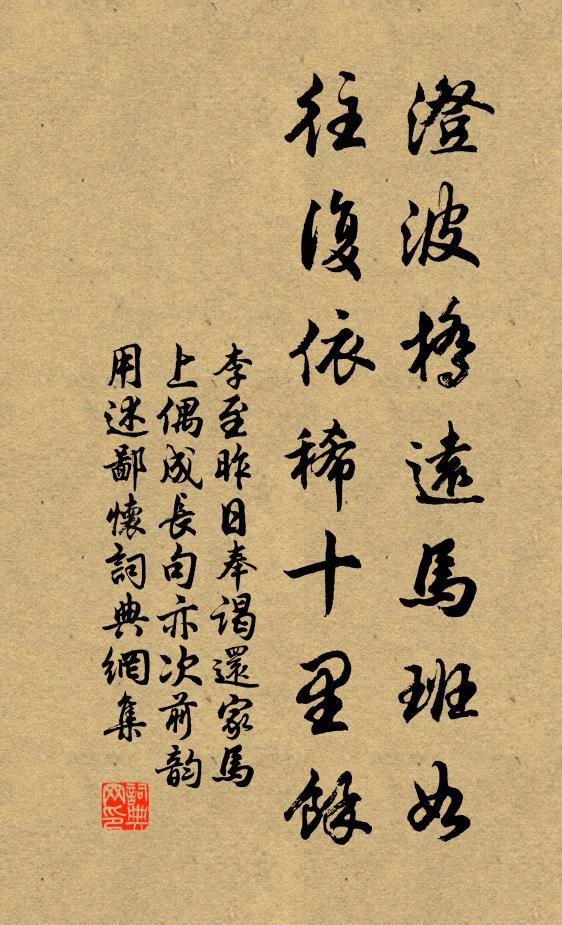 澄波橋遠馬班如
往復依稀十里餘
李至昨日奉謁還家馬
上偶成長句亦次前韵
用述鄙懷詞典網集
詞典
网印